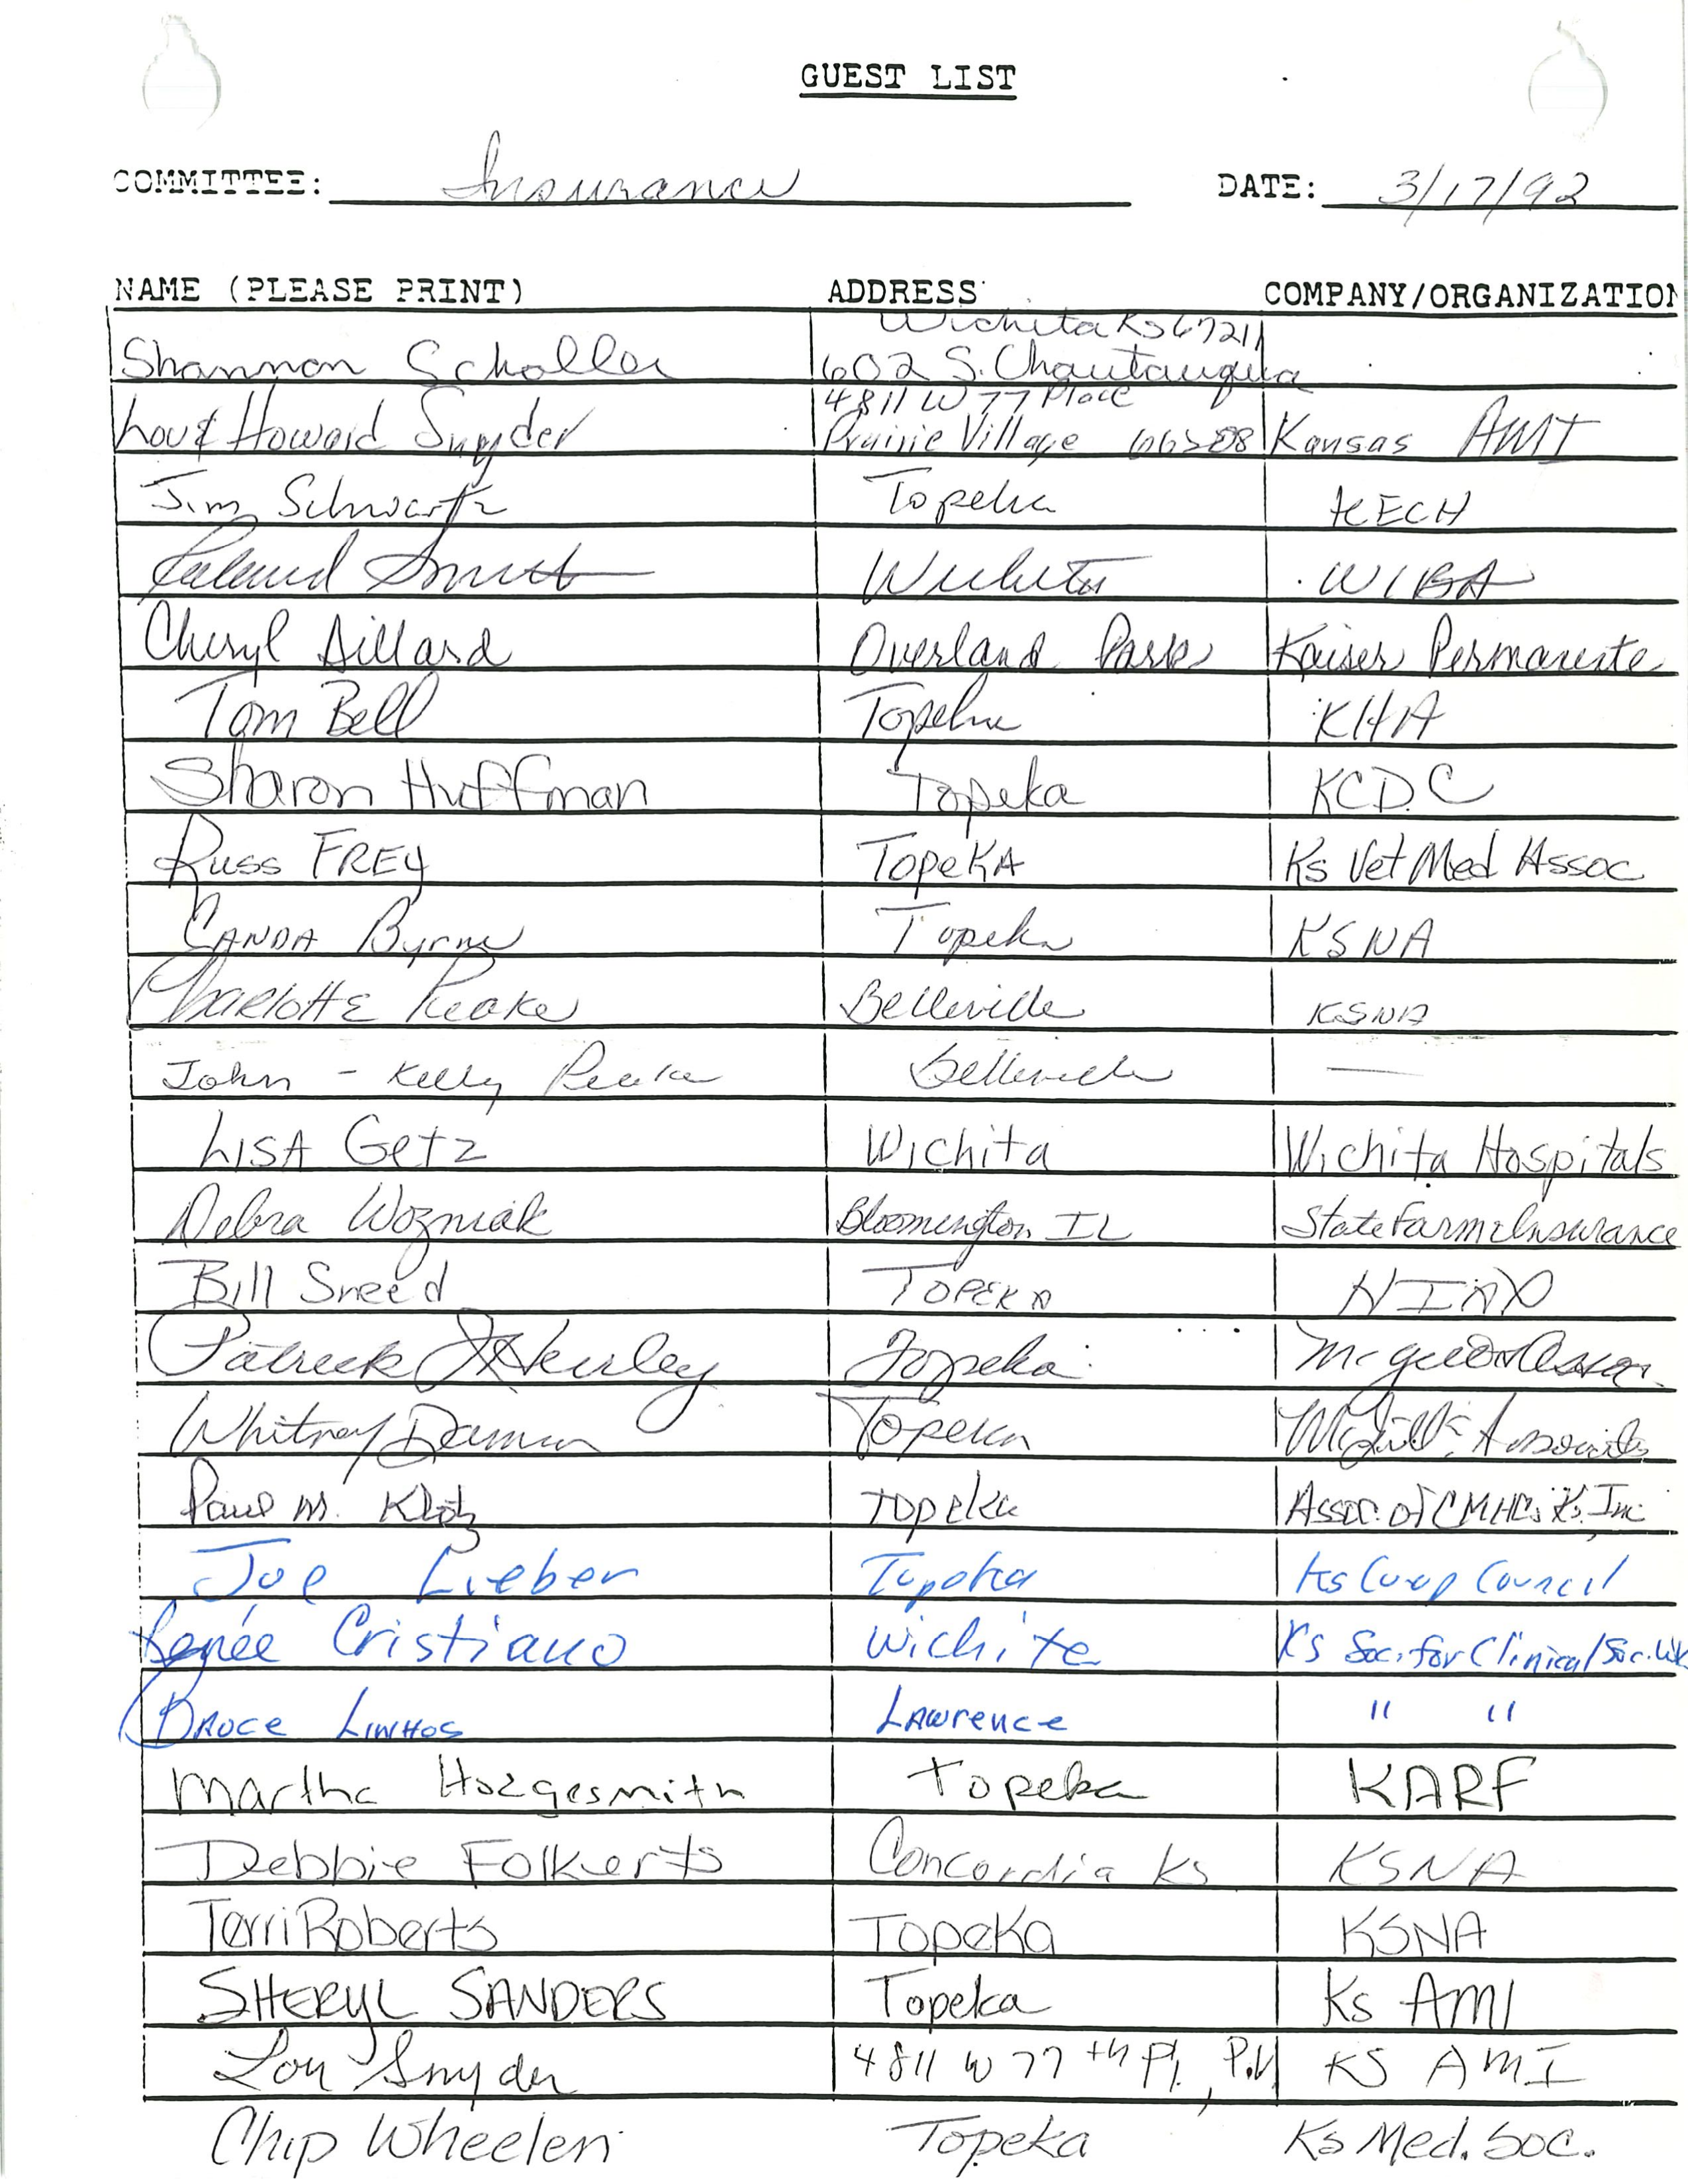 GUEST LIST
COMMITTEE: Insurance DATE: 3/17/92
NAME (PLEASE PRINT) ADDRESS COMPANY/ORGANIZATION
Wichita Ks 67211
Shannon Scholler 602 S. Chautauqua
4811 W 77 Place
Lou & Howard Snyder Prairie Village 66208 Kansas AMI
Jim Schwartz Topeka KECH
Smith Wichita WIBA
Cheryl Dillard Overland Park Kaiser Permanente
Tom Bell Topeka KHA
Sharon Huffman Topeka KCDC
Russ FREY TopeKA Ks Vet Med Assoc
CANDA Byrne Topeka KSNA
CharlottE Peake Belleville KSNA
John - Kelly Peake Belleville —
LISA Getz Wichita Wichita Hospitals
Debra Wozniak Bloomington, IL State Farm Insurance
Bill Sneed TOPEKA HIAA
Patrick J Hurley Topeka
Whitney Damron Topeka Associates
Paul M. Klotz Topeka Assoc. of CMHCs Ks. Inc
Joe Lieber Topeka Ks Co-op Council
Renée Cristiano Wichita Ks Soc. for Clinical Soc. Wk
Bruce Linhos Lawrence " "
Martha Hodgesmith Topeka KARF
Debbie Folkerts Concordia Ks KSNA
Terri Roberts Topeka KSNA
SHERYL SANDERS Topeka Ks AMI
Lou Snyder 4811 W 77th Pl., P.V. KS AMI
Chip Wheelen Topeka Ks Med. Soc.